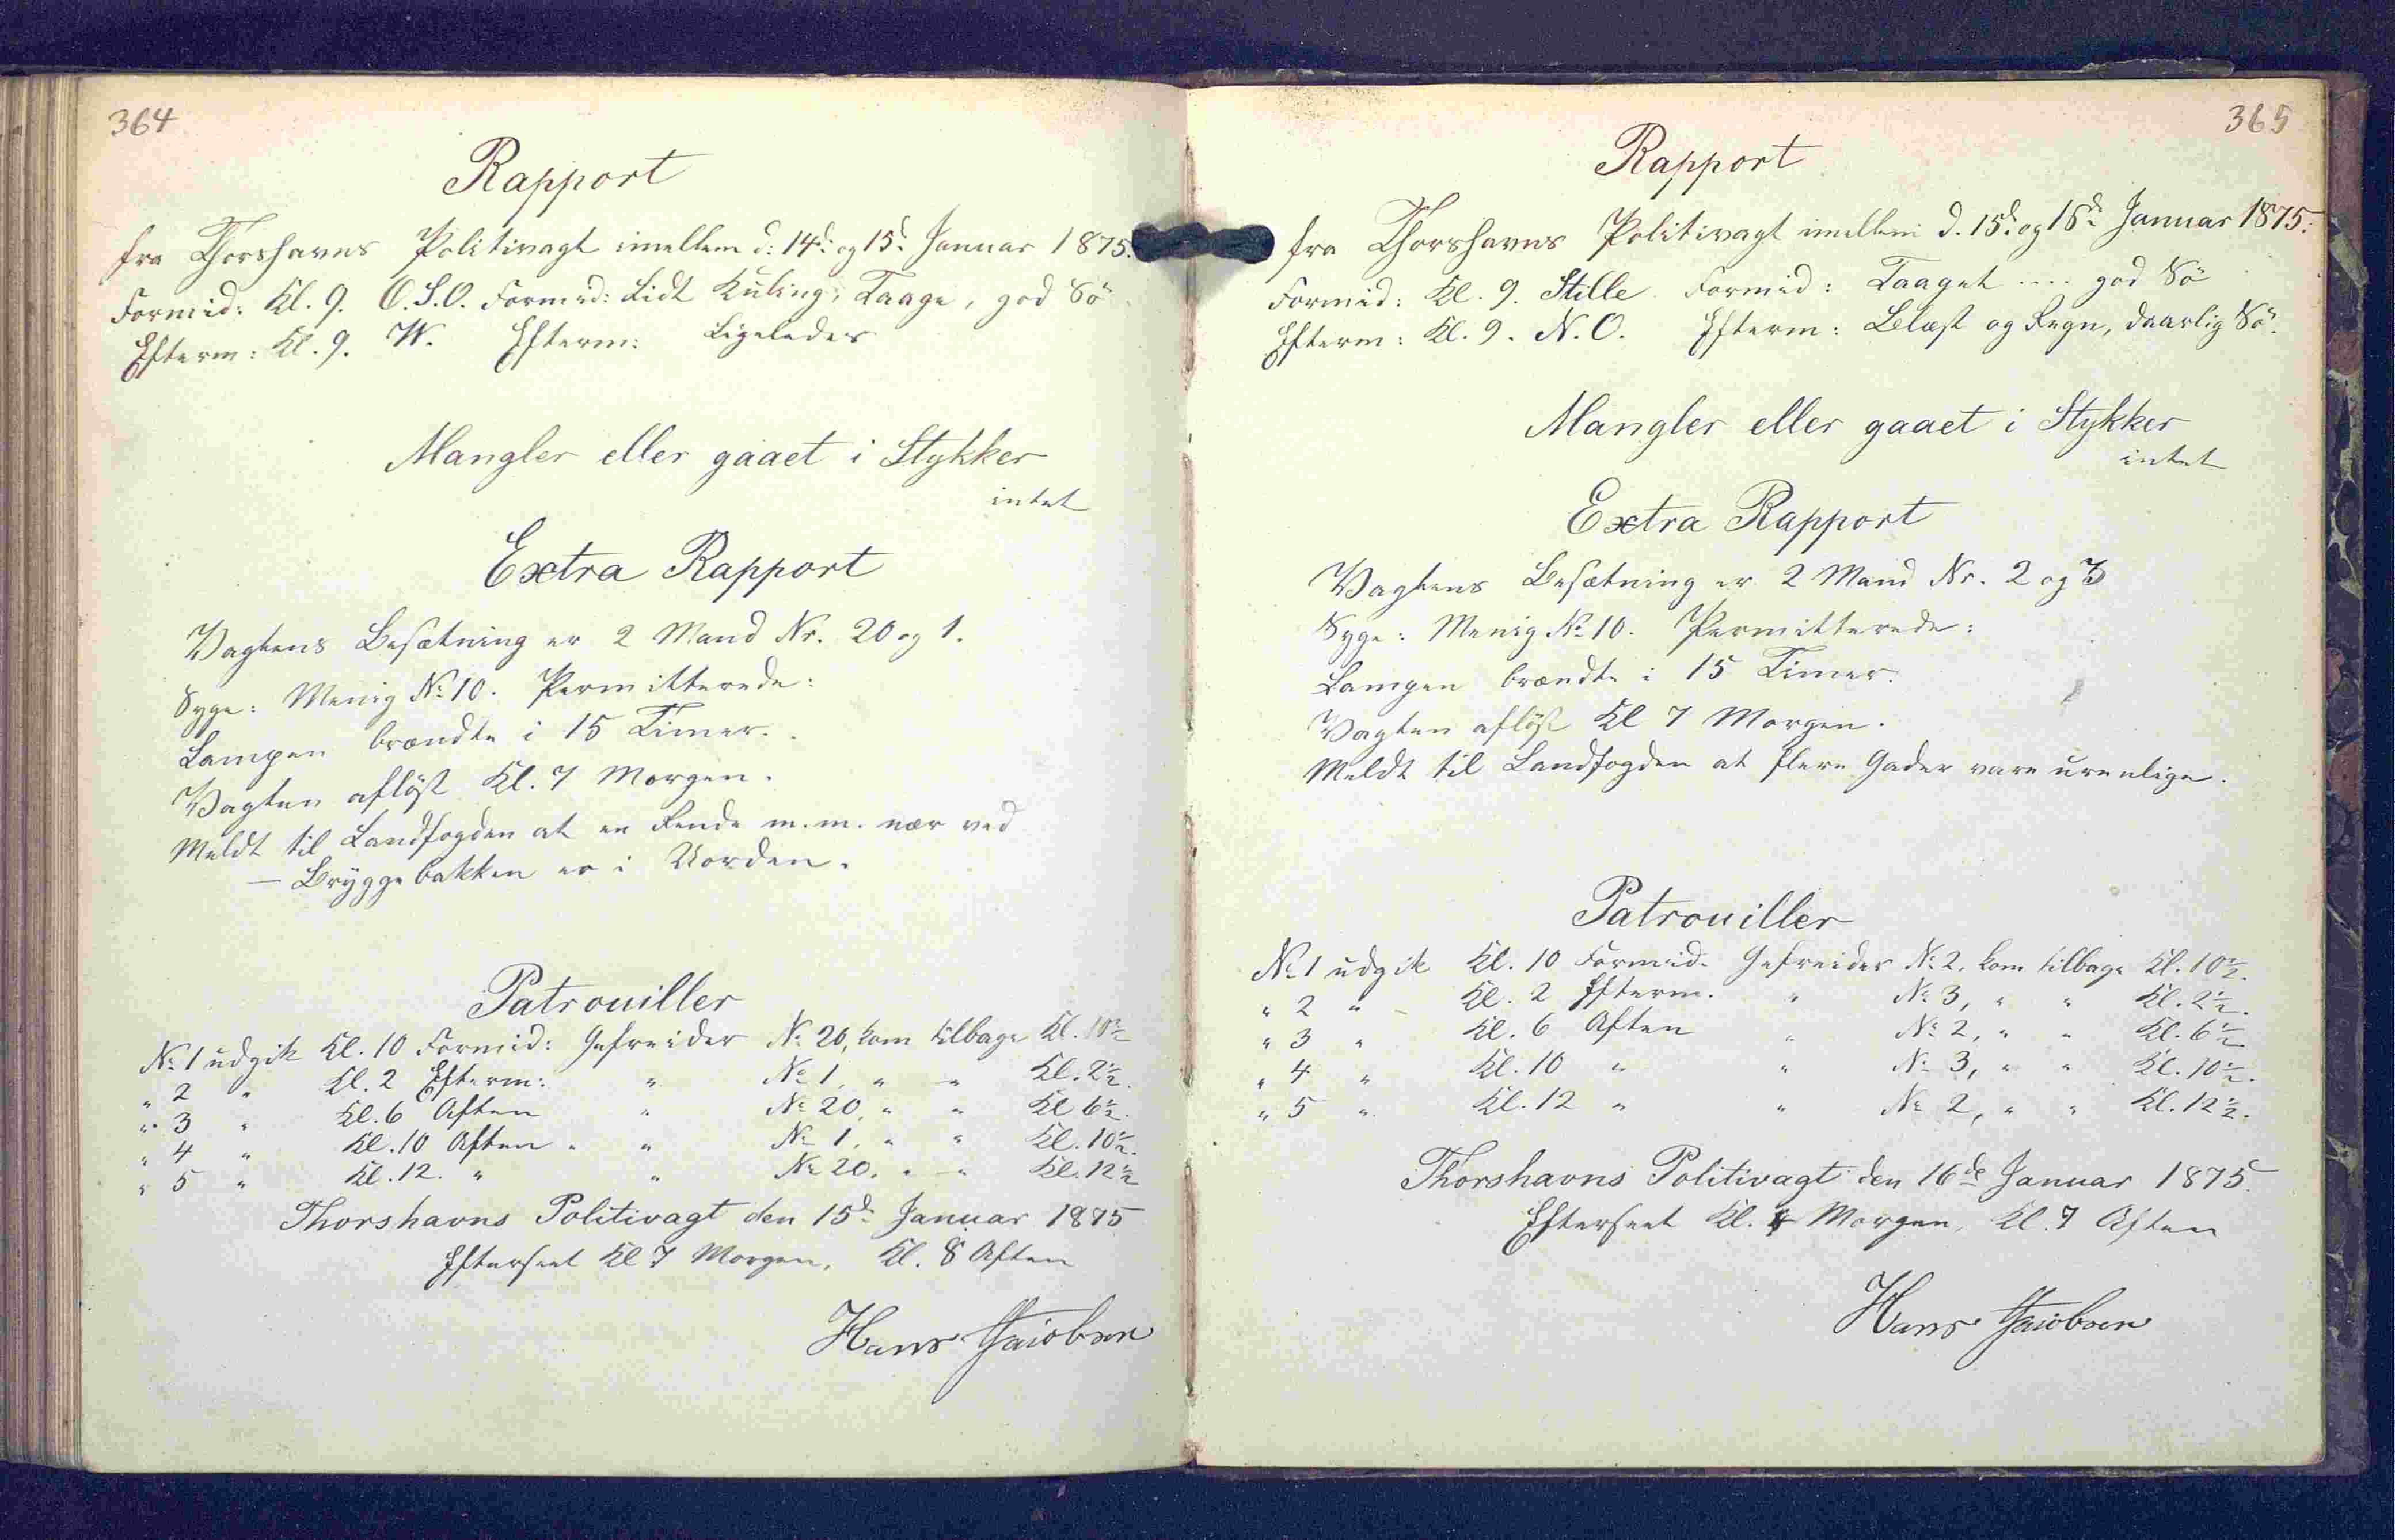 364
Rapport
fra Thorshavns Politivagt imellem d: 14d: og 15d: Januar 1875.
Formid: Kl. 9. O.S.O. Formid: Lidt Kuling, Taage, god Sö
Efterm: Kl. 9. W. Efterm: Ligeledes
Mangler eller gaaet i Stykker
intet
Extra Rapport
Vagtens Besætning er 2 Mand Nr. 20 og 1.
Syge: Menig No 10. Permitterede:
Lampen brændte i 15 Timer.
Vagten aflöst Kl. 7 Morgen.
Meldt til Landfogden at en Rende m.m. nær ved
— Bryggebakken er i Uorden.
Patrouiller
No 1 udgik Kl. 10 Formid: Gefreider No 20, kom tilbage Kl. 10½
" 2 " Kl. 2 Efterm: " No 1, " " Kl. 2½.
" 3 " Kl. 6 Aften " No 20, " " Kl 6½.
" 4 " Kl. 10 Aften " " No 1, " " Kl. 10½.
" 5 " Kl. 12. " " No 20, " " Kl. 12½
Thorshavns Politivagt den 15d: Januar 1875
Efterseet Kl 7 Morgen, Kl. 8 Aften
Hans Jacobsen
365
Rapport
fra Thorshavns Politivagt imellem d. 15d: og 16d: Januar 1875.
Formid: Kl. 9. Stille Formid: Taaget .... god Sö
Efterm: Kl. 9. N.O. Efterm: Blæst og Regn, daarlig Sö.
Mangler eller gaaet i Stykker
intet
Extra Rapport
Vagtens Besætning er 2 Mand Nr. 2 og 3
Syge: Menig No 10. Permitterede:
Lampen brændte i 15 Timer.
Vagten aflöst Kl 7 Morgen.
Meldt til Landfogden at flere Gader vare urenlige.
Patrouiller
No 1 udgik Kl. 10 Formid. Gefreider No 2, kom tilbage Kl. 10½.
" 2 " Kl. 2 Efterm. " No 3, " " Kl. 2½.
" 3 " Kl. 6 Aften " No 2, " " Kl. 6½
" 4 " Kl. 10 " " No 3, " " Kl. 10½.
" 5 " Kl. 12 " " No 2, " " Kl. 12½.
Thorshavns Politivagt den 16de Januar 1875.
Efterseet Kl. Morgen, Kl. 7 Aften
Hans Jacobsen